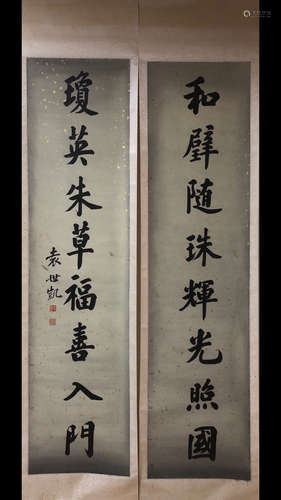 和璧随珠輝光照國
瓊英朱草福善入門
袁世凱